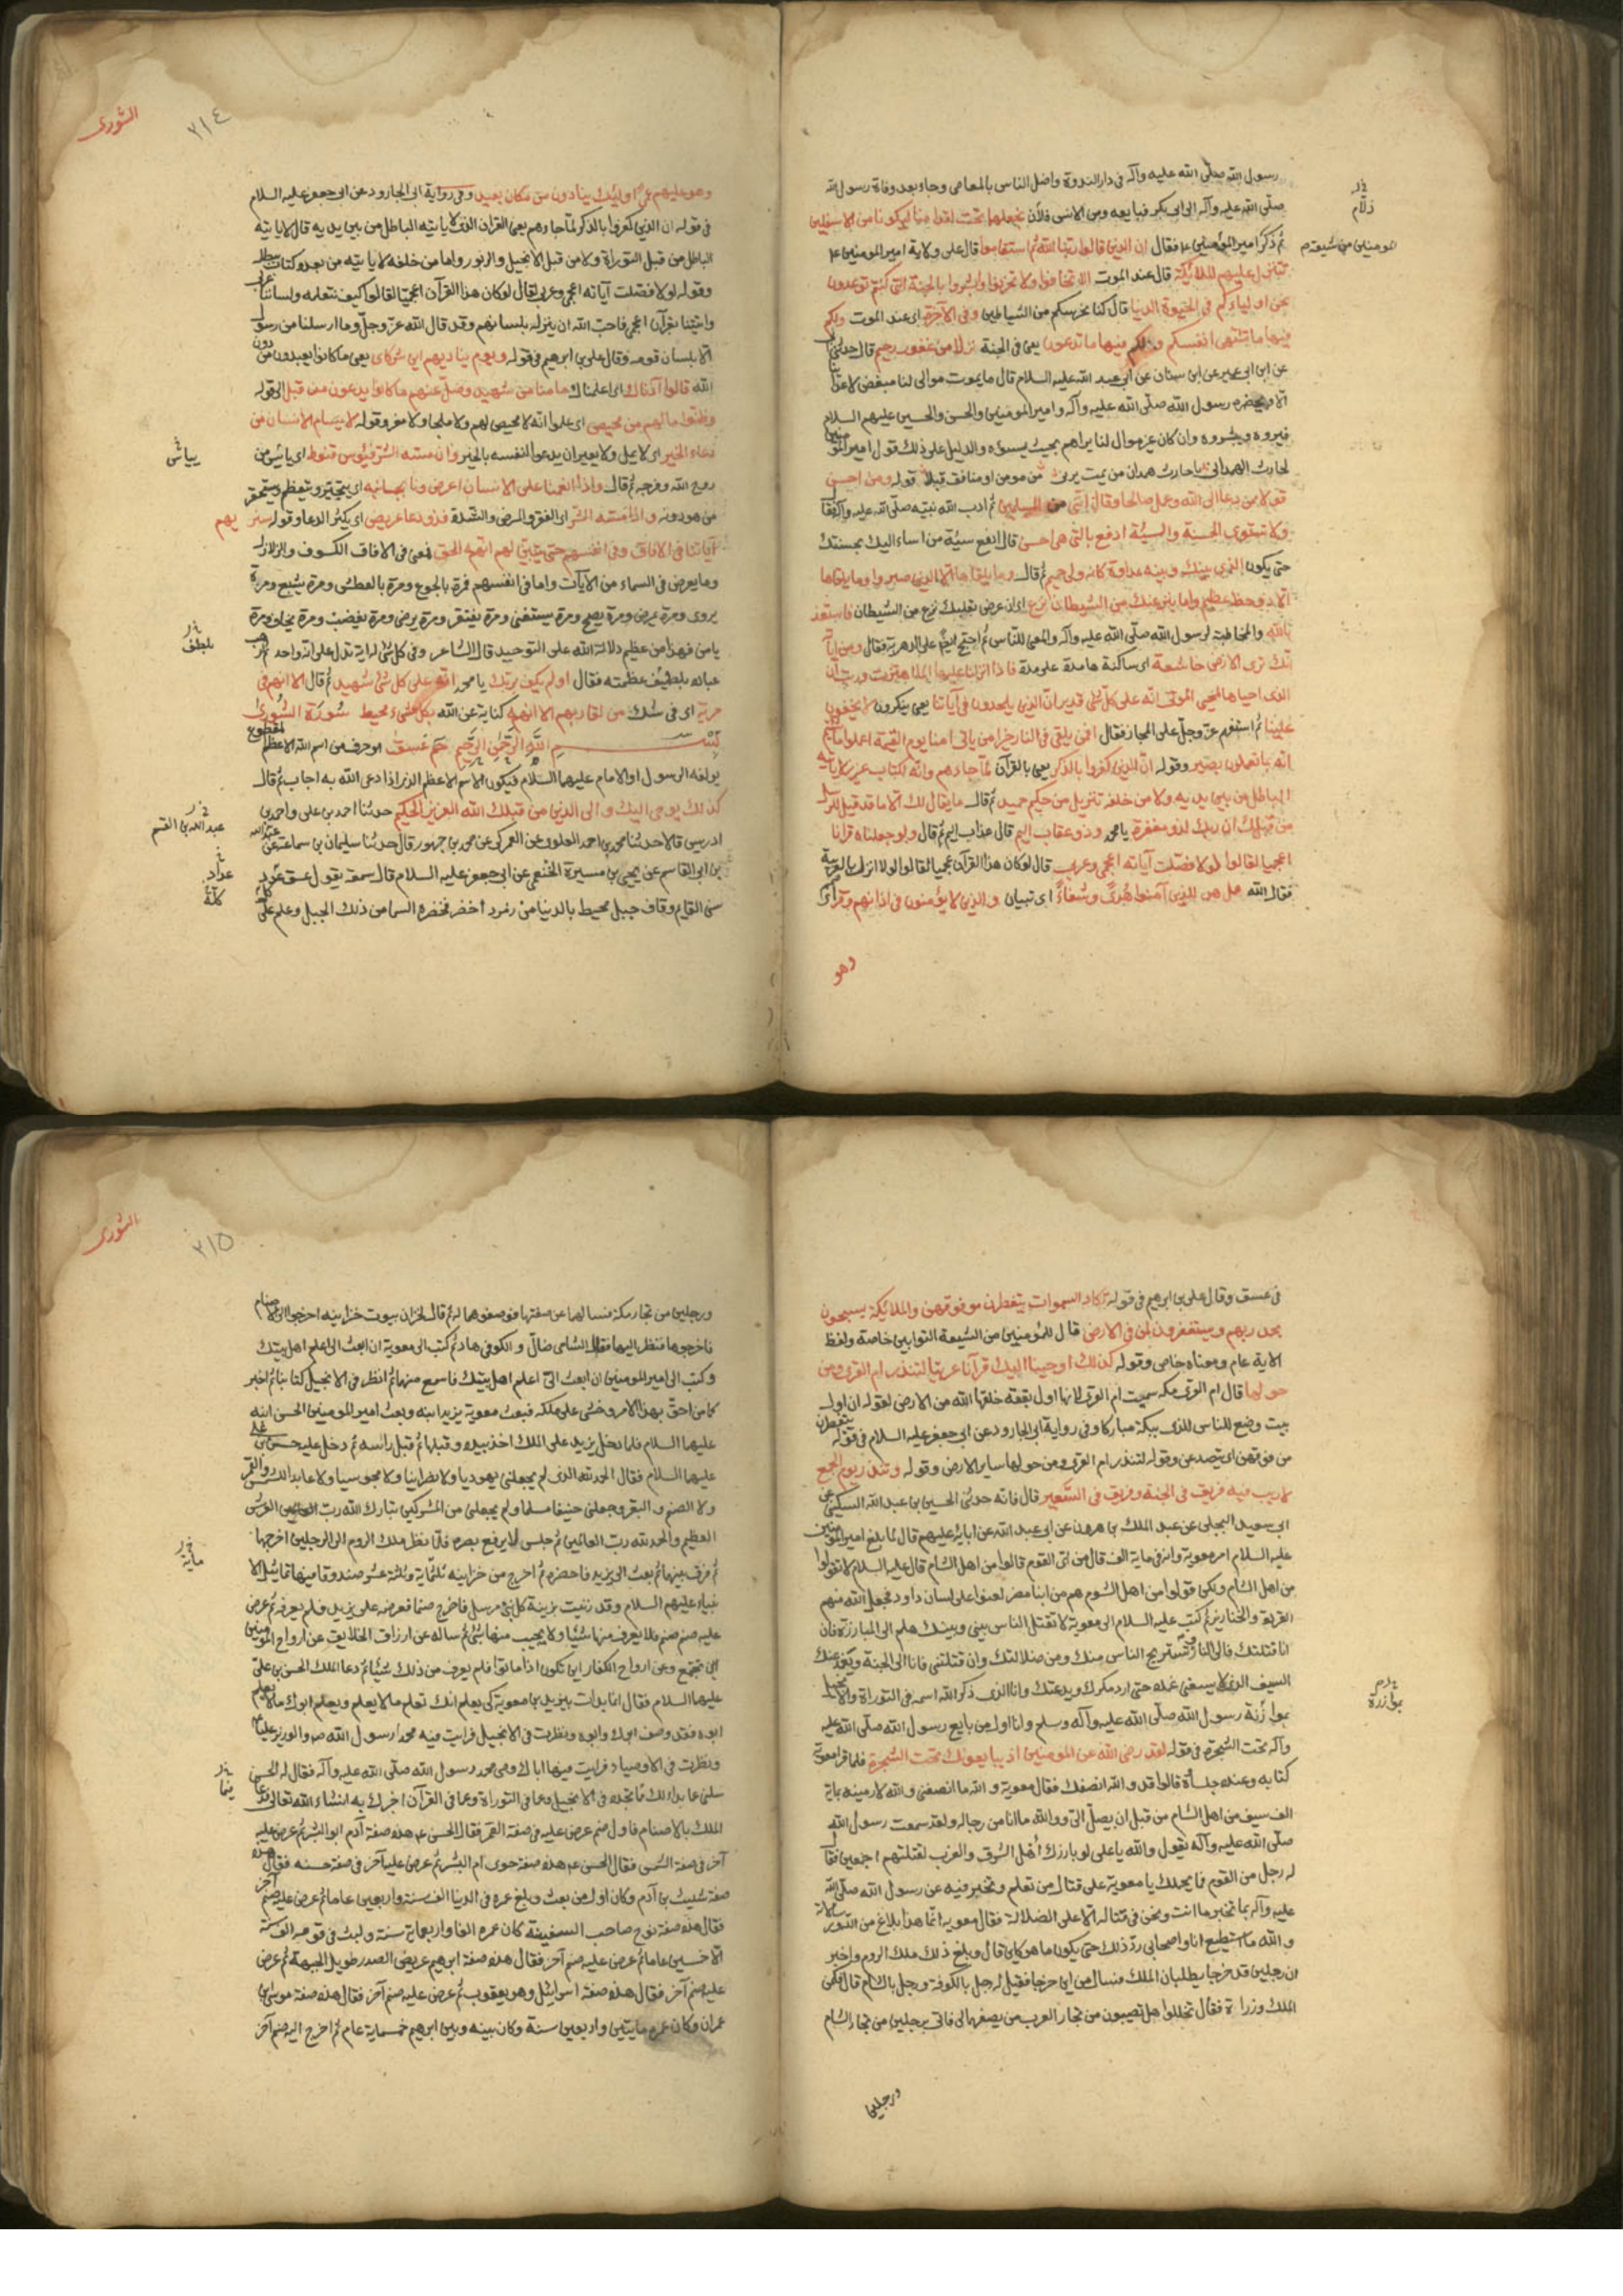 رسول الله صلّى الله عليه وآله فى دار الندوة واضل الناس بالمعاصى وجاء بعد وفاة رسول الله
صلّى الله عليه وآله الى ابى بكر فبايعه ومن الانس فلان نجعلهما تحت اقدامنا ليكونا من الاسفلين
ثم ذكر امير المؤمنين ع فقال ان الذين قالوا ربنا الله ثم استقاموا قال على ولاية امير المومنين ع
تتنزل عليهم الملائكة قال عند الموت الا تخافوا ولا تحزنوا وابشروا بالجنة التى كنتم توعدون
نحن اولياؤكم فى الحيوة الدنيا قال كنا نحرسكم من الشياطين وفى الآخرة اى عند الموت ولكم
فيها ما تشتهى انفسكم ولكم فيها ما تدعون يعنى فى الجنة نزلا من غفور رحيم قال حدثنى
عن ابن ابى عمير عن ابن سنان عن ابى عبد الله عليه السلام قال ما يموت موالى لنا مبغض لاعدائنا
الا ويحضره رسول الله صلّى الله عليه وآله وامير المومنين والحسن والحسين عليهم السلام
فيروه ويبشروه وان كان غير موال لنا يراهم بحيث يسوؤه والدليل على ذلك قول امير المومنين
لحارث الهمدانى يا حارث همدان من يمت يرنى من مومن او منافق قبلا قوله ومن احسن
قولا ممن دعا الى الله وعمل صالحا وقال اننى من المسلمين ثم ادب الله نبيه صلّى الله عليه وآله فقال
ولا تستوى الحسنة والسيئة ادفع بالتى هى احسن قال ادفع سيئة من اساء اليك بحسنتك
حتى يكون الذى بينك وبينه عداوة كانه ولى حميم ثم قال وما يلقاها الا الذين صبروا وما يلقاها
الا ذو حظ عظيم واما ينزغنك من الشيطان نزغ اى ان عرض بقلبك نزغ من الشيطان فاستعذ
بالله والمخاطبة لرسول الله صلّى الله عليه وآله والمعنى للناس ثم احتج على الدهرية فقال ومن آياته
انك ترى الارض خاشعة اى ساكنة هامدة فاذا انزلنا عليها الماء اهتزت وربت ان
الذى احياها لمحيى الموتى انه على كل شئ قدير ان الذين يلحدون فى آياتنا يعنى ينكرون لا يخفون
علينا ثم استفهم عز وجل على المجاز فقال افمن يلقى فى النار خير امن ياتى امنا يوم القيمة اعملوا ما شئتم
انه بما تعملون بصير وقوله ان الذين كفروا بالذكر يعنى بالقرآن لما جاءهم وانه لكتاب عزيز لا ياتيه
الباطل من بين يديه ولا من خلفه تنزيل من حكيم حميد ثم قال ما يقال لك الا ما قد قيل للرسل
من قبلك ان ربك لذو مغفرة يا محمد وذو عقاب اليم قال عذاب اليم ثم قال ولو جعلناه قرانا
اعجميا لقالوا لولا فصلت آياته اعجمى وعربى قال لو كان هذا القرآن عجميا لقالوا لولا انزل بالعربية
فقال الله قل هو للذين آمنوا هُدىً وشفاءً اى تبيان والذين لا يؤمنون فى اذانهم وقر اى
وهو
زلام
المومنين من شيعته م
الشورى
٢١٤
وهو عليهم عمى اولئك ينادون من مكان بعيد وفى رواية ابى الجارود عن ابى جعفر عليه السلام
فى قوله ان الذين كفروا بالذكر لما جاءهم يعنى القرآن الذى لا ياتيه الباطل من بين يديه قال لا ياتيه
الباطل من قبل التوراة ولا من قبل الانجيل والزبور واما من خلفه لا ياتيه من بعده كتاب يبطله
وقوله لولا فصلت آياته اعجمى وعربى قال لو كان هذا القرآن اعجميا لقالوا كيف نتعلمه ولساننا عربى
واتيتنا بقرآن اعجمى فاحب الله ان ينزله بلسانهم وقد قال الله عز وجل وما ارسلنا من رسول
الا بلسان قومه وقال على بن ابرهيم فى قوله ويوم يناديهم اين شركاى يعنى ما كانوا يعبدون من دون
الله قالوا آذناك اى اعلمناك ما منا من شهيد وضل عنهم ما كانوا يدعون من قبل الى قوله
وظنوا ما لهم من محيص اى علموا انه لا محيص لهم ولا ملجا ولا مفر وقوله لا يسام الانسان من
دعاء الخير اى لا يمل ولا يعيى ان يدعو لنفسه بالخير وان مسه الشر فيؤس قنوط اى يائس من
روح الله وفرجه ثم قال واذا انعمنا على الانسان اعرض ونا بجانبه اى يتبختر ويتعظم ويستحقر
من هو دونه واذا مسه الشر اى الفقر والمرض والشدة فذو دعا عريض اى يكثر الدعا وقوله سنريهم
آياتنا فى الافاق وفى انفسهم حتى يتبين لهم انه الحق فمعنى فى الافاق الكسوف والزلازل
وما يعرض فى السماء من الآيات واما فى انفسهم فمرة بالجوع ومرة بالعطش ومرة يشبع ومرة
يروى ومرة يمرض ومرة يصح ومرة يستغنى ومرة يفتقر ومرة يرضى ومرة يغضب ومرة يخاف ومرة
يامن فهذا من عظيم دلالة الله على التوحيد قال الشاعر وفى كل شئ له اية تدل على انه واحد ثم ارهب
عباده بلطيف عظمته فقال اولم يكف بربك يا محمد انه على كل شئ شهيد ثم قال الا انهم فى
مرية اى فى شك من لقاء ربهم الا انه كناية عن الله بكل شىء محيط سورة الشورى
بسم الله الرحمن الرحيم حم عسق هو حرف من اسم الله الاعظم المقطوع
يولفه الرسول او الامام عليهما السلام فيكون الاسم الاعظم الذى اذا دعى الله به اجاب ثم قال
كذلك يوحى اليك والى الذين من قبلك الله العزيز الحكيم حدثنا احمد بن على واحمد بن
ادريس قالا حدثنا محمد بن احمد العلوى عن العمركى عن محمد بن جمهور قال حدثنا سليمان بن سماعة عن عبد الله
بن ابى القاسم عن يحيى بن ميسرة الخثعمى عن ابى جعفر عليه السلام قال سمعته يقول عسق عدد
سنى القايم وقاف جبل محيط بالدنيا من زمرد اخضر فخضرة السما من ذلك الجبل وعلم على
يلطف
عبد الله بن القسم
عداد
كله
فى عسق وقال على بن ابرهيم فى قوله تكاد السموات يتفطرن من فوقهن والملائكة يسبحون
بحمد ربهم ويستغفرون لمن فى الارض قال للمؤمنين من الشيعة التوابين خاصة ولفظ
الاية عام ومعناه خاص وقوله كذلك اوحينا اليك قرآنا عربيا لتنذر ام القرى ومن
حولها قال ام القرى مكه سميت ام القرى لانها اول بقعة خلقها الله من الارض لقوله ان اول
بيت وضع للناس للذى ببكة مباركا وفى رواية ابى الجارود عن ابى جعفر عليه السلام فى قوله يتفطرن
من فوقهن اى يتصدعن وقوله لتنذر ام القرى ومن حولها ساير الارض وقوله وتنذر يوم الجمع
لا ريب فيه فريق فى الجنة وفريق فى السَّعير قال فانه حدثنى الحسين بن عبد الله السكينى عن
ابى سعيد البجلى عن عبد الملك بن هرون عن ابى عبد الله عن ابائه عليهم قال لما بلغ امير المومنين
عليه السلام امر معوية وانه فى ماية الف قال من اى القوم قالوا من اهل الشام قال عليه السلام لا تقولوا
من اهل الشام ولكن قولوا من اهل الشوم هم من ابنا مضر لعنوا على لسان داود فجعل الله منهم
القردة والخنازير ثم كتب عليه السلام الى معوية لا تقتل الناس بينى وبينك هلم الى المبارزة فان
انا قتلتك فالى النار وتستريح الناس منك ومن ضلالتك وان قتلتنى فانا الى الجنة ويغمد عنك
السيف الذى لا يسعنى غمده حتى ارد مكرك وبدعتك وانا الذى ذكر الله اسمه فى التوراة والانجيل
بموازرة رسول الله صلّى الله عليه وآله وسلم وانا اول من بايع رسول الله صلّى الله عليه
وآله تحت الشجرة فى قوله لقد رضى الله عن المومنين اذ يبايعونك تحت الشجرة فلما قرا معوية
كتابه وعنده جلساؤه قالوا قد والله انصفك فقال معوية والله ما انصفنى والله لارمينه بماية
الف سيف من اهل الشام من قبل ان يصل الىّ ووالله ما انا من رجاله ولقد سمعت رسول الله
صلّى الله عليه وآله يقول والله يا على لو بارزك اهل الشرق والغرب لقتلتهم اجمعين فقال
له رجل من القوم فما يحملك يا معوية على قتال من تعلم وتخبر فيه عن رسول الله صلّى الله
عليه وآله بما تخبر ما انت ونحن فى قتاله الا على الضلالة فقال معوية انما هذا بلاغ من الله ورسالاته
والله ما استطيع انا واصحابى رد ذلك حتى يكون ما هو كاين قال وبلغ ذلك ملك الروم واخبر
ان رجلين قد خرجا يطلبان الملك فسال من اين خرجا فقيل له رجل بالكوفة ورجل بالشام قال
الملك وزراة فقال تخللوا هل تصيبون من تجار العرب من يصفهما لى فاتى برجلين من تجار الشام
ورجلين
بموازرة
الشورى
٢١٥
ورجلين من تجار مكة فسالهما عن صفتهما فوصفوهما له ثم قال لخزان بيوت خزاينه اخرجوا الى الاصنام
فاخرجوها فنظر اليها فقال الشامى ضال والكوفى هاد ثم كتب الى معوية ان ابعث الى اعلم اهل بيتك
وكتب الى امير المومنين ان ابعث الىّ اعلم اهل بيتك فاسمع منهما ثم انظر فى الانجيل كتابنا ثم اخبر
كما من احق بهذا الامر وخشى على ملكه فبعث معوية يزيد ابنه وبعث امير المومنين الحسن ابنه
عليهما السلام فلما دخل يزيد على الملك اخذ بيده وقبلها ثم قبل راسه ثم دخل عليه حسن بن على
عليهما السلام فقال الحمد لله الذى لم يجعلنى يهوديا ولا نصرانيا ولا مجوسيا ولا عابد الشمس والقمر
ولا الصنم والبقر وجعلنى حنيفا مسلما ولم يجعلنى من المشركين تبارك الله رب العرش
العظيم والحمد لله رب العالمين ثم جلس لا يرفع بصره فلما نظر ملك الروم الى الرجلين اخرجهما
ثم فرق بينهما ثم بعث الى يزيد فاحضره ثم اخرج من خزاينه ثلثماية وثلثة عشر صندوقا فيها تماثيل الا
نبياء عليهم السلام وقد زينت بزينة كل نبى مرسل فاخرج صنما فعرضه على يزيد فلم يعرفه ثم عرض
عليه صنم صنم فلا يعرف منها شيئا ولا يجيب منها بشئ ثم ساله عن ارزاق الخلايق وعن ارواح المومنين
اين تجتمع وعن ارواح الكفار اين تكون اذا ماتوا فلم يعرف من ذلك شيئا ثم دعا الملك الحسن بن على
عليهما السلام فقال انما بدات بيزيد بن معوية كى يعلم انك تعلم ما لا يعلم ويعلم ابوك ما لا يعلم
ابوه فقد وصف ابوك وابوه ونظرت فى الانجيل فرايت فيه محمد رسول الله ص والوزير عليا ع
ونظرت فى الاوصياء فرايت فيها اباك وصى محمد رسول الله صلّى الله عليه وآله فقال له الحسن
سلنى عما بدا لك مما تجده فى الانجيل وعما فى التوراة وعما فى القرآن اخبرك به انشاء الله تعالى فدعا
الملك بالاصنام فاول صنم عرض عليه فى صفة القمر فقال الحسن ع هذه صفة آدم ابو البشر ثم عرض عليه
آخر فى صفة الشمس فقال الحسن ع هذه صفة حوى ام البشر ثم عرض عليه آخر فى صفة حسنه فقال هذه
صفة شيث بن آدم وكان اول من بعث وبلغ عمره فى الدنيا الف سنة واربعين عاما ثم عرض عليه صنم آخر
فقال هذه صفة نوح صاحب السفينة كان عمره الفا واربعماية سنة ولبث فى قومه الف سنة
الا خمسين عاما ثم عرض عليه صنم آخر فقال هذه صفة ابرهيم عريض الصدر طويل الجبهة ثم عرض
عليه صنم آخر فقال هذه صفة اسرائيل وهو يعقوب ثم عرض عليه صنم آخر فقال هذه صفة موسى بن
عمران وكان عمره مايتين واربعين سنة وكان بينه وبين ابرهيم خمسماية عام ثم اخرج اليه صنم آخر
ماية
فيما